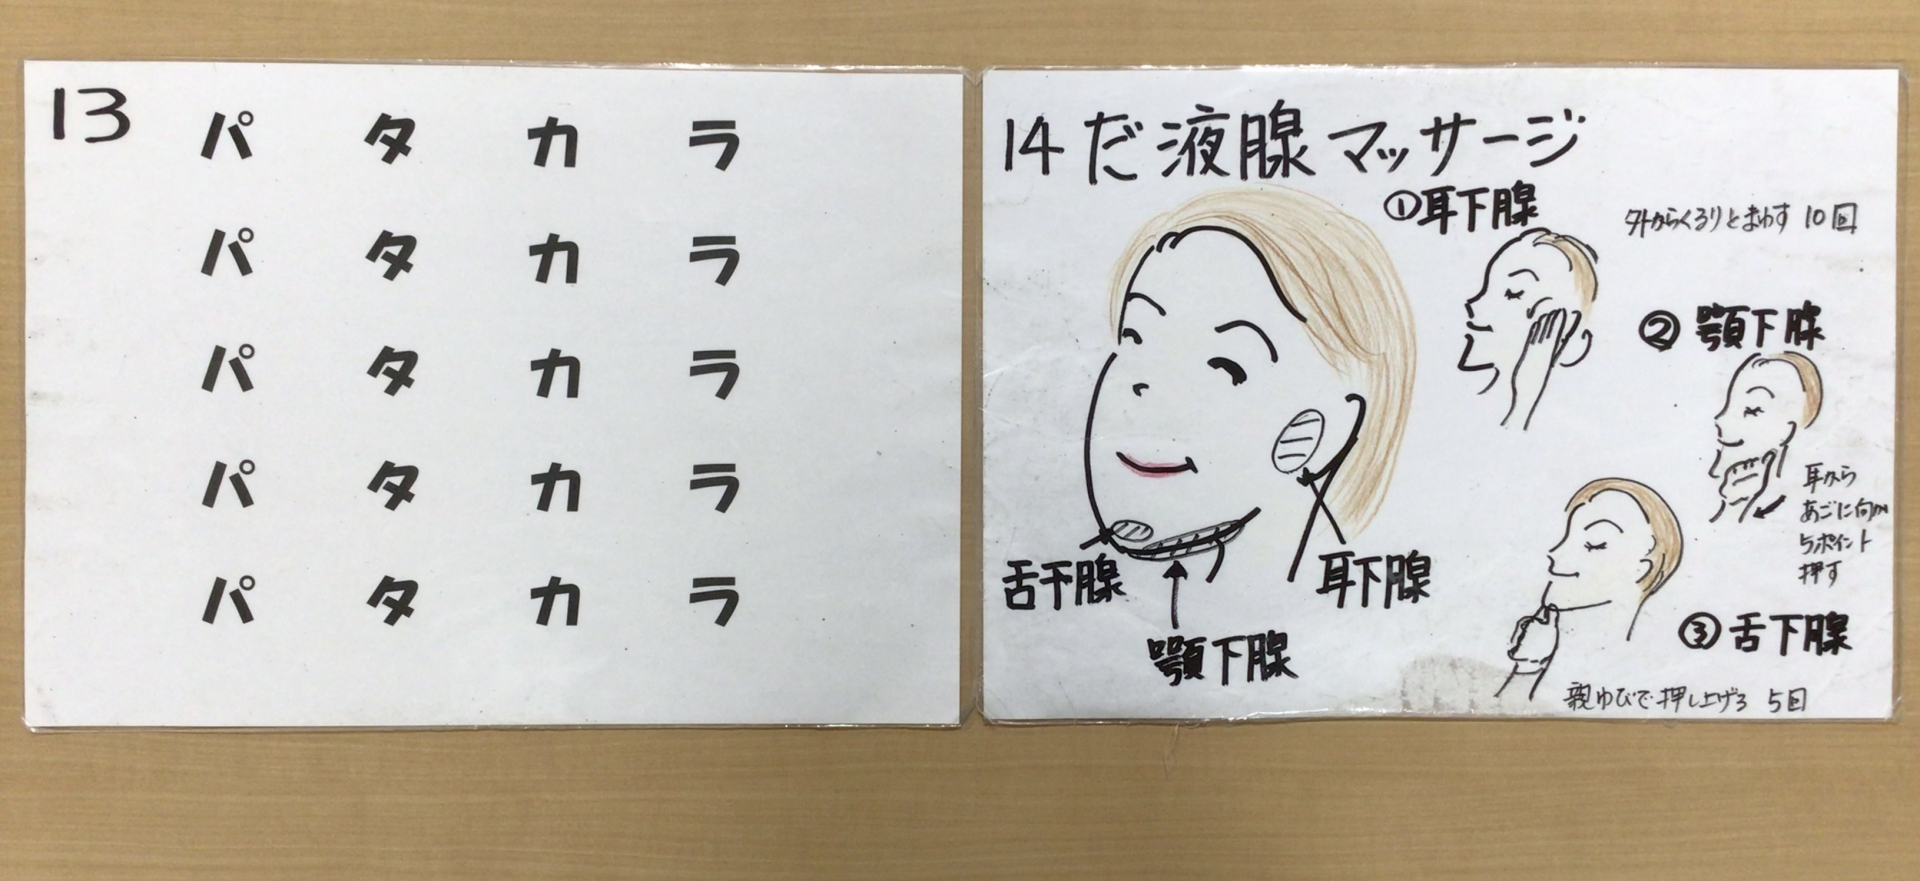 13
パ タ カ ラ
パ タ カ ラ
パ タ カ ラ
パ タ カ ラ
パ タ カ ラ
14 だ液腺マッサージ
①耳下腺
外からくるりとまわす 10回
② 顎下腺
耳から
あごに向か
5ポイント
押す
③ 舌下腺
親ゆびで押し上げる 5回
舌下腺
顎下腺
耳下腺